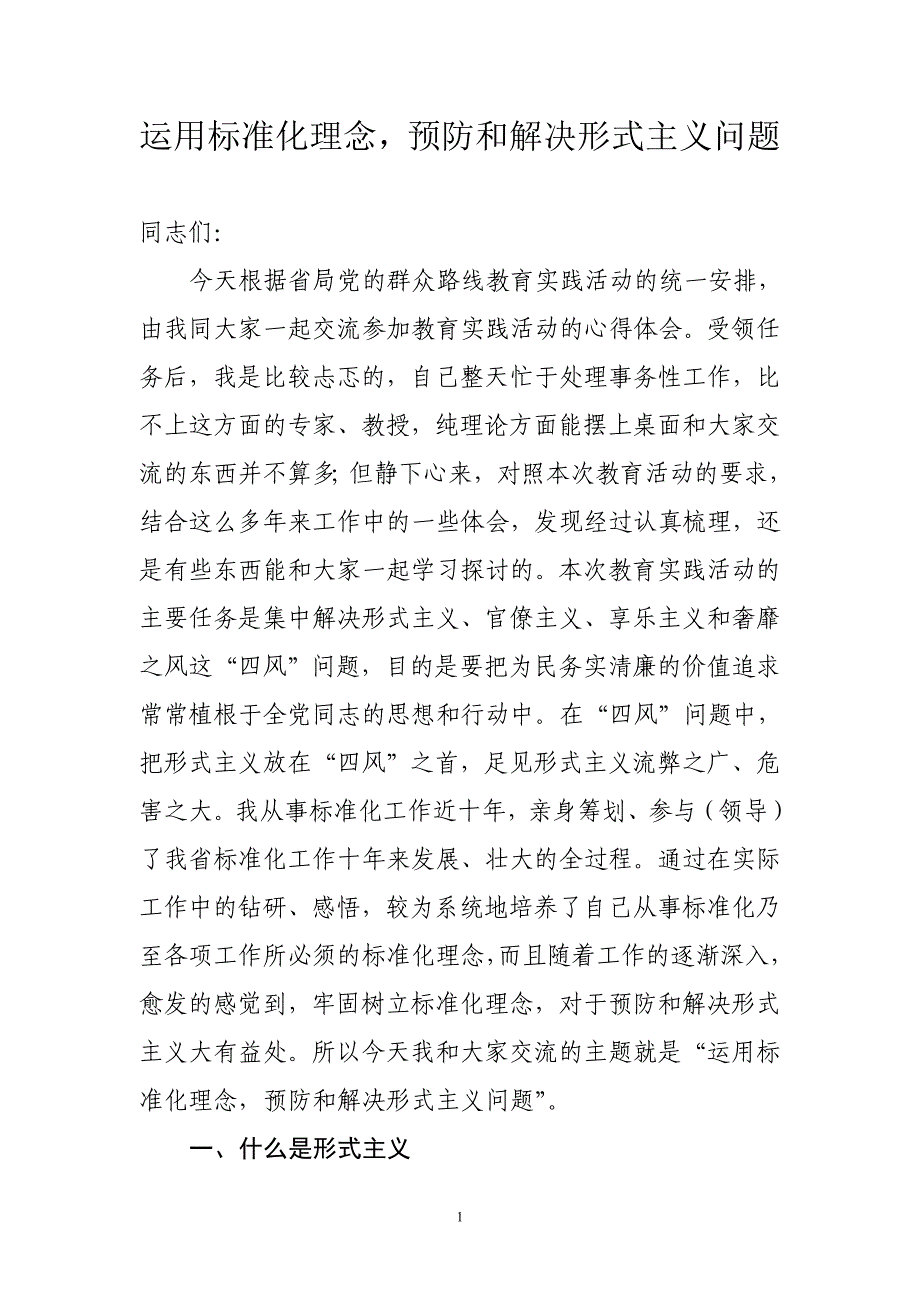 运用标准化理念，预防和解决形式主义问题
同志们：
今天根据省局党的群众路线教育实践活动的统一安排，
由我同大家一起交流参加教育实践活动的心得体会。受领任
务后，我是比较忐忑的，自己整天忙于处理事务性工作，比
不上这方面的专家、教授，纯理论方面能摆上桌面和大家交
流的东西并不算多；但静下心来，对照本次教育活动的要求，
结合这么多年来工作中的一些体会，发现经过认真梳理，还
是有些东西能和大家一起学习探讨的。本次教育实践活动的
主要任务是集中解决形式主义、官僚主义、享乐主义和奢靡
之风这“四风”问题，目的是要把为民务实清廉的价值追求
常常植根于全党同志的思想和行动中。在“四风”问题中，
把形式主义放在“四风”之首，足见形式主义流弊之广、危
害之大。我从事标准化工作近十年，亲身筹划、参与（领导）
了我省标准化工作十年来发展、壮大的全过程。通过在实际
工作中的钻研、感悟，较为系统地培养了自己从事标准化乃
至各项工作所必须的标准化理念，而且随着工作的逐渐深入，
愈发的感觉到，牢固树立标准化理念，对于预防和解决形式
主义大有益处。所以今天我和大家交流的主题就是“运用标
准化理念，预防和解决形式主义问题”。
一、什么是形式主义
1